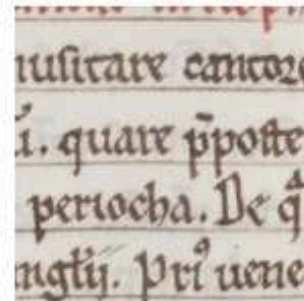 nusitare cantore
ū. quare p̄poste
periocha. De q̄
nglij. Pri⁹ uene